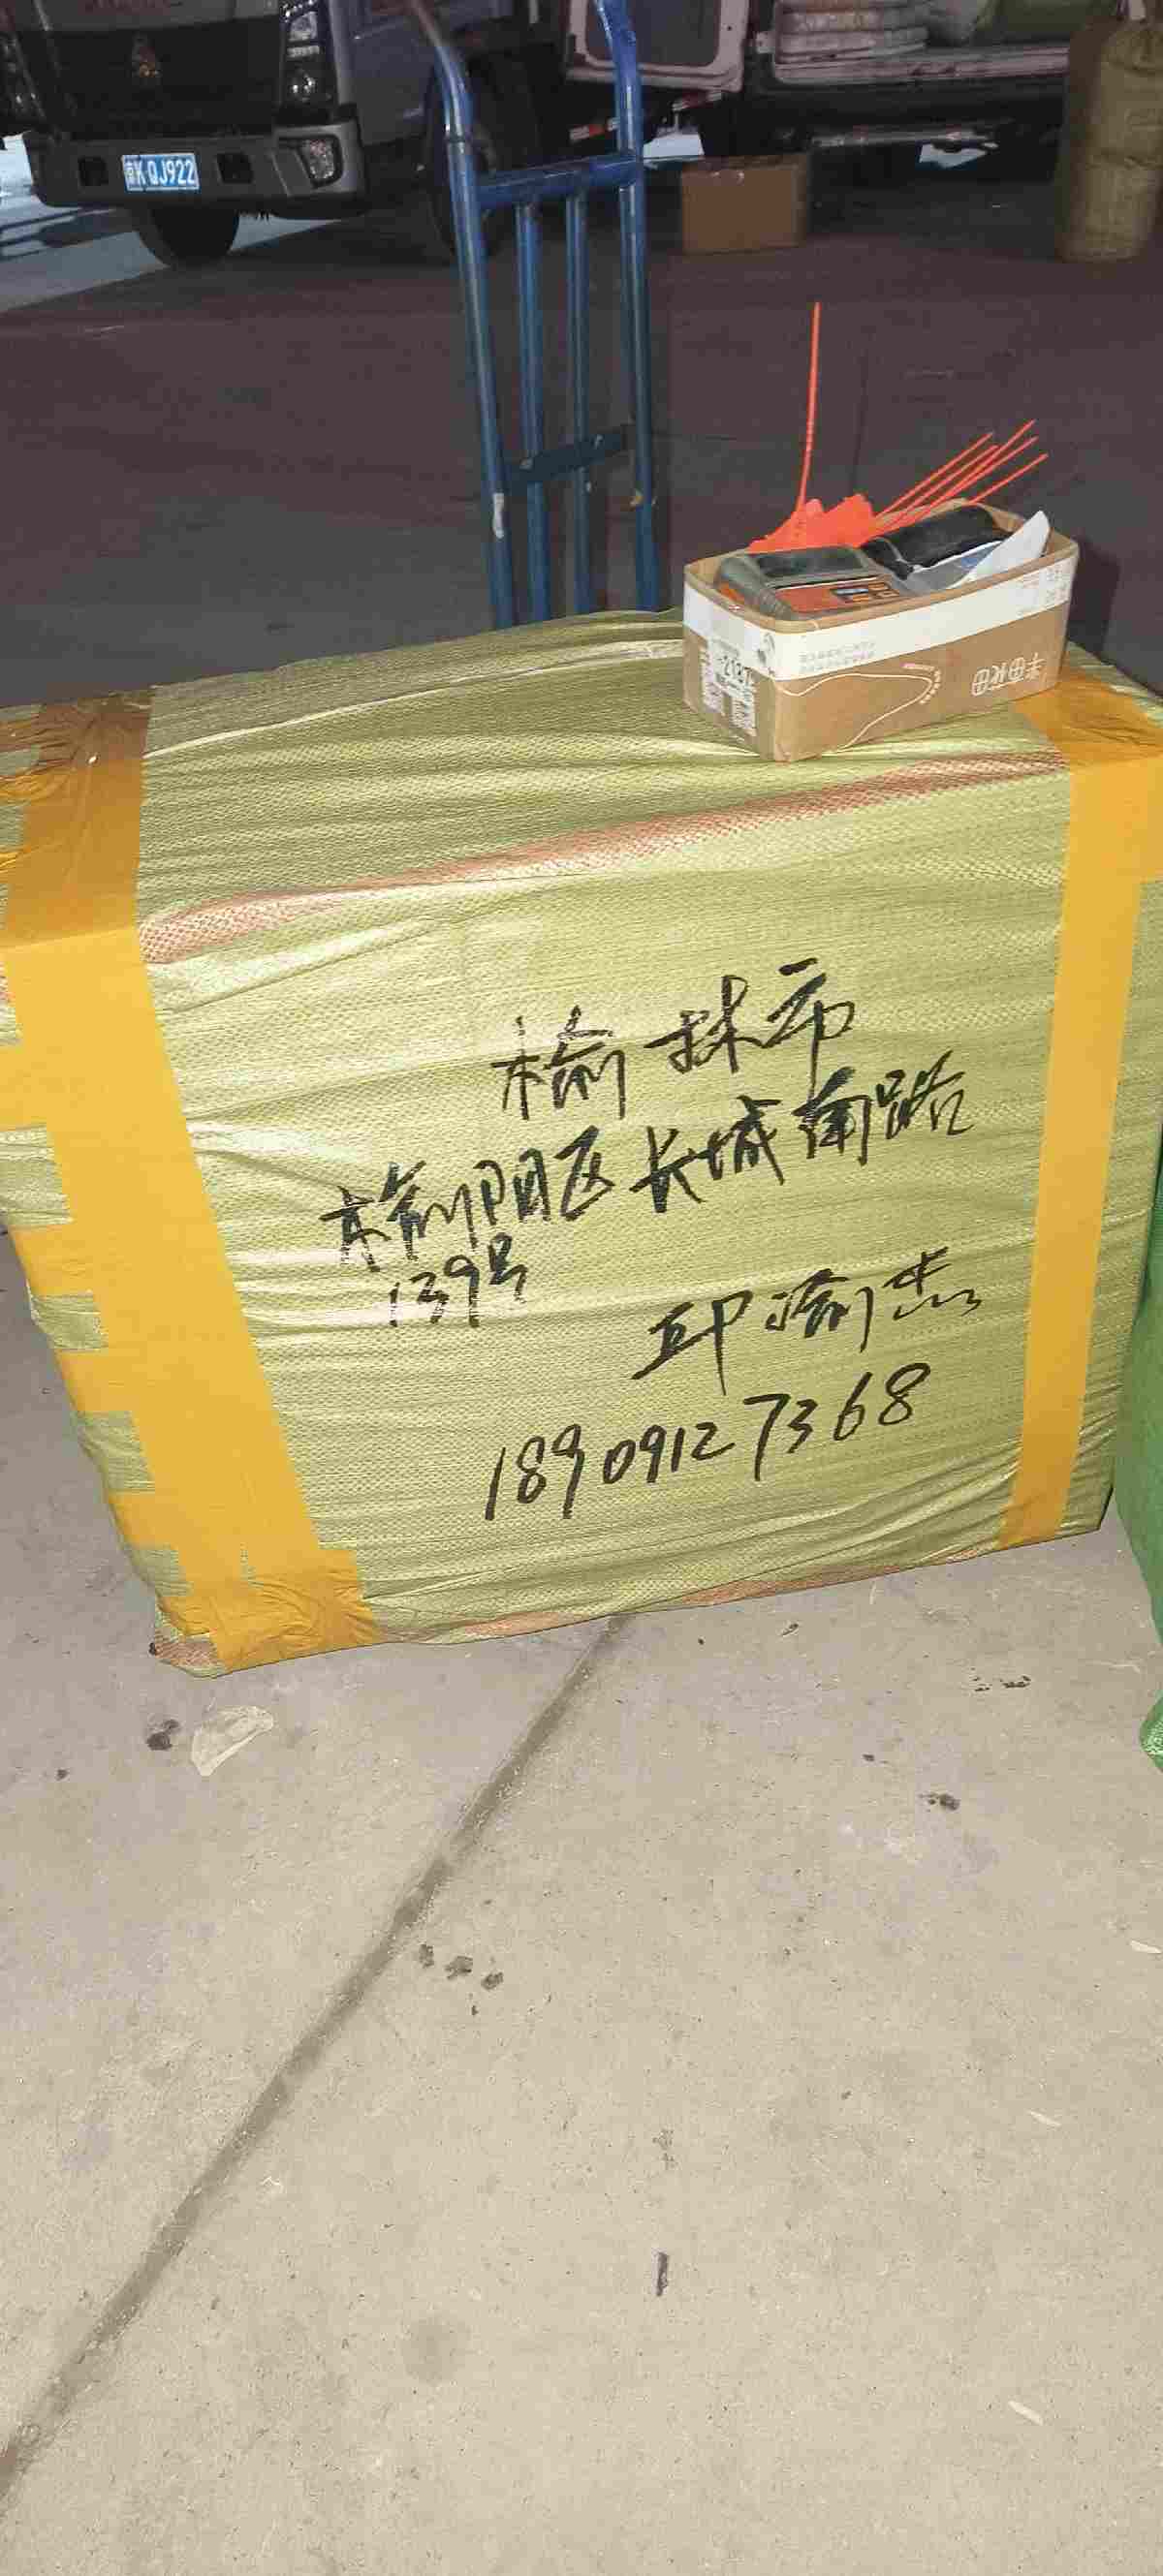 KQJ922
半亩花田
榆林市
榆阳区长城南路
139号
杰
18909127368